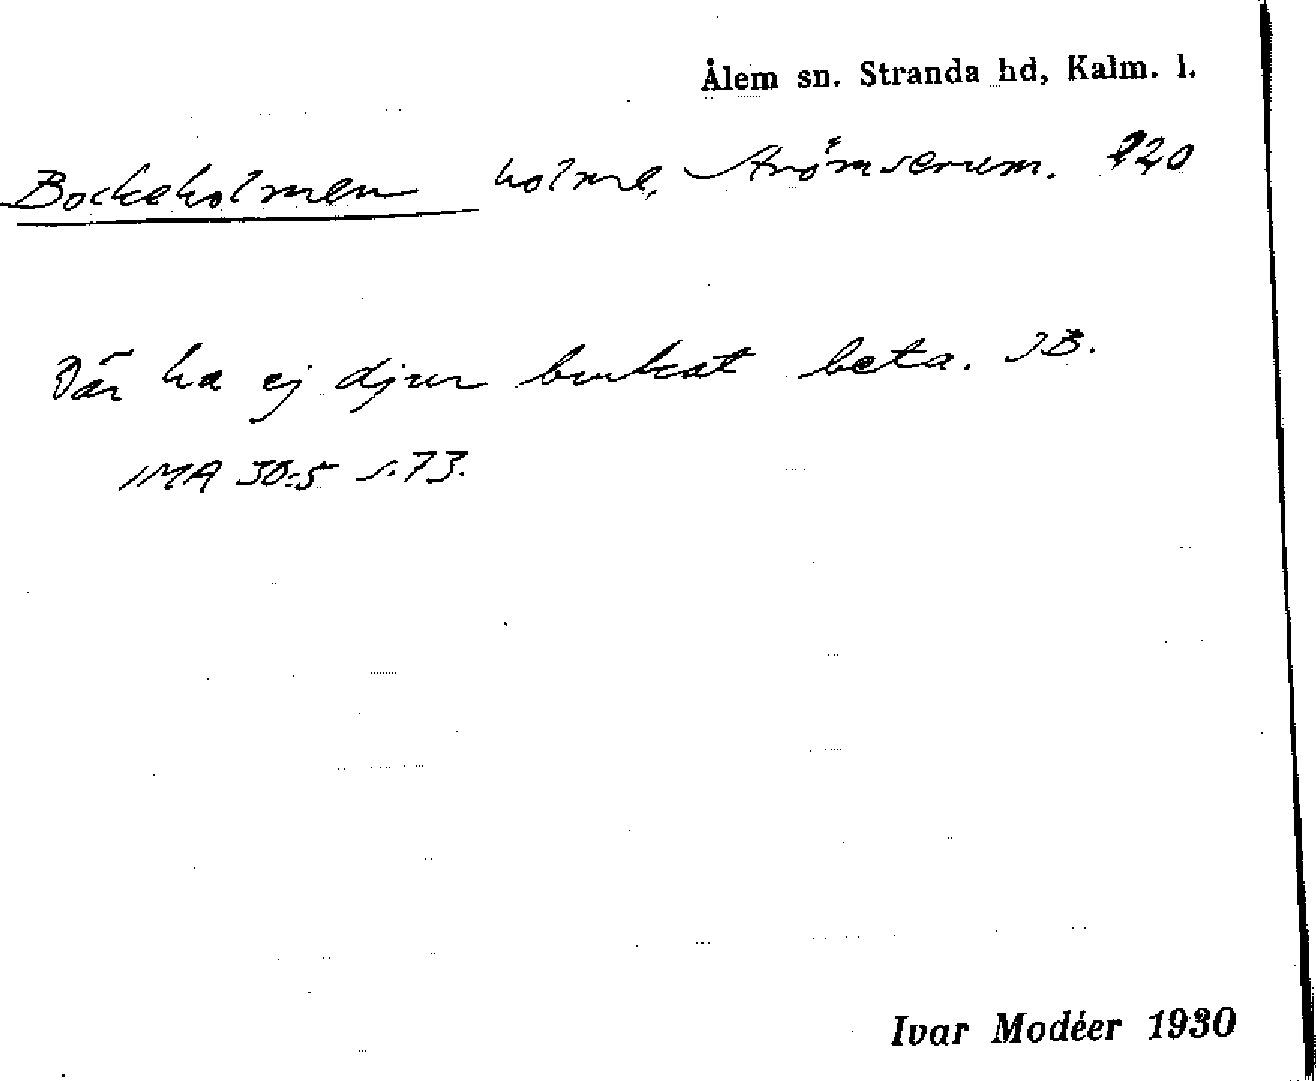 Ålem sn. Stranda hd, Kalm. l.
Bockeholmen holme, Strömserum. 920
Där ha ej djur brukat beta. JB.
IMA 30:5 s. 73.
Ivar Modéer 1930